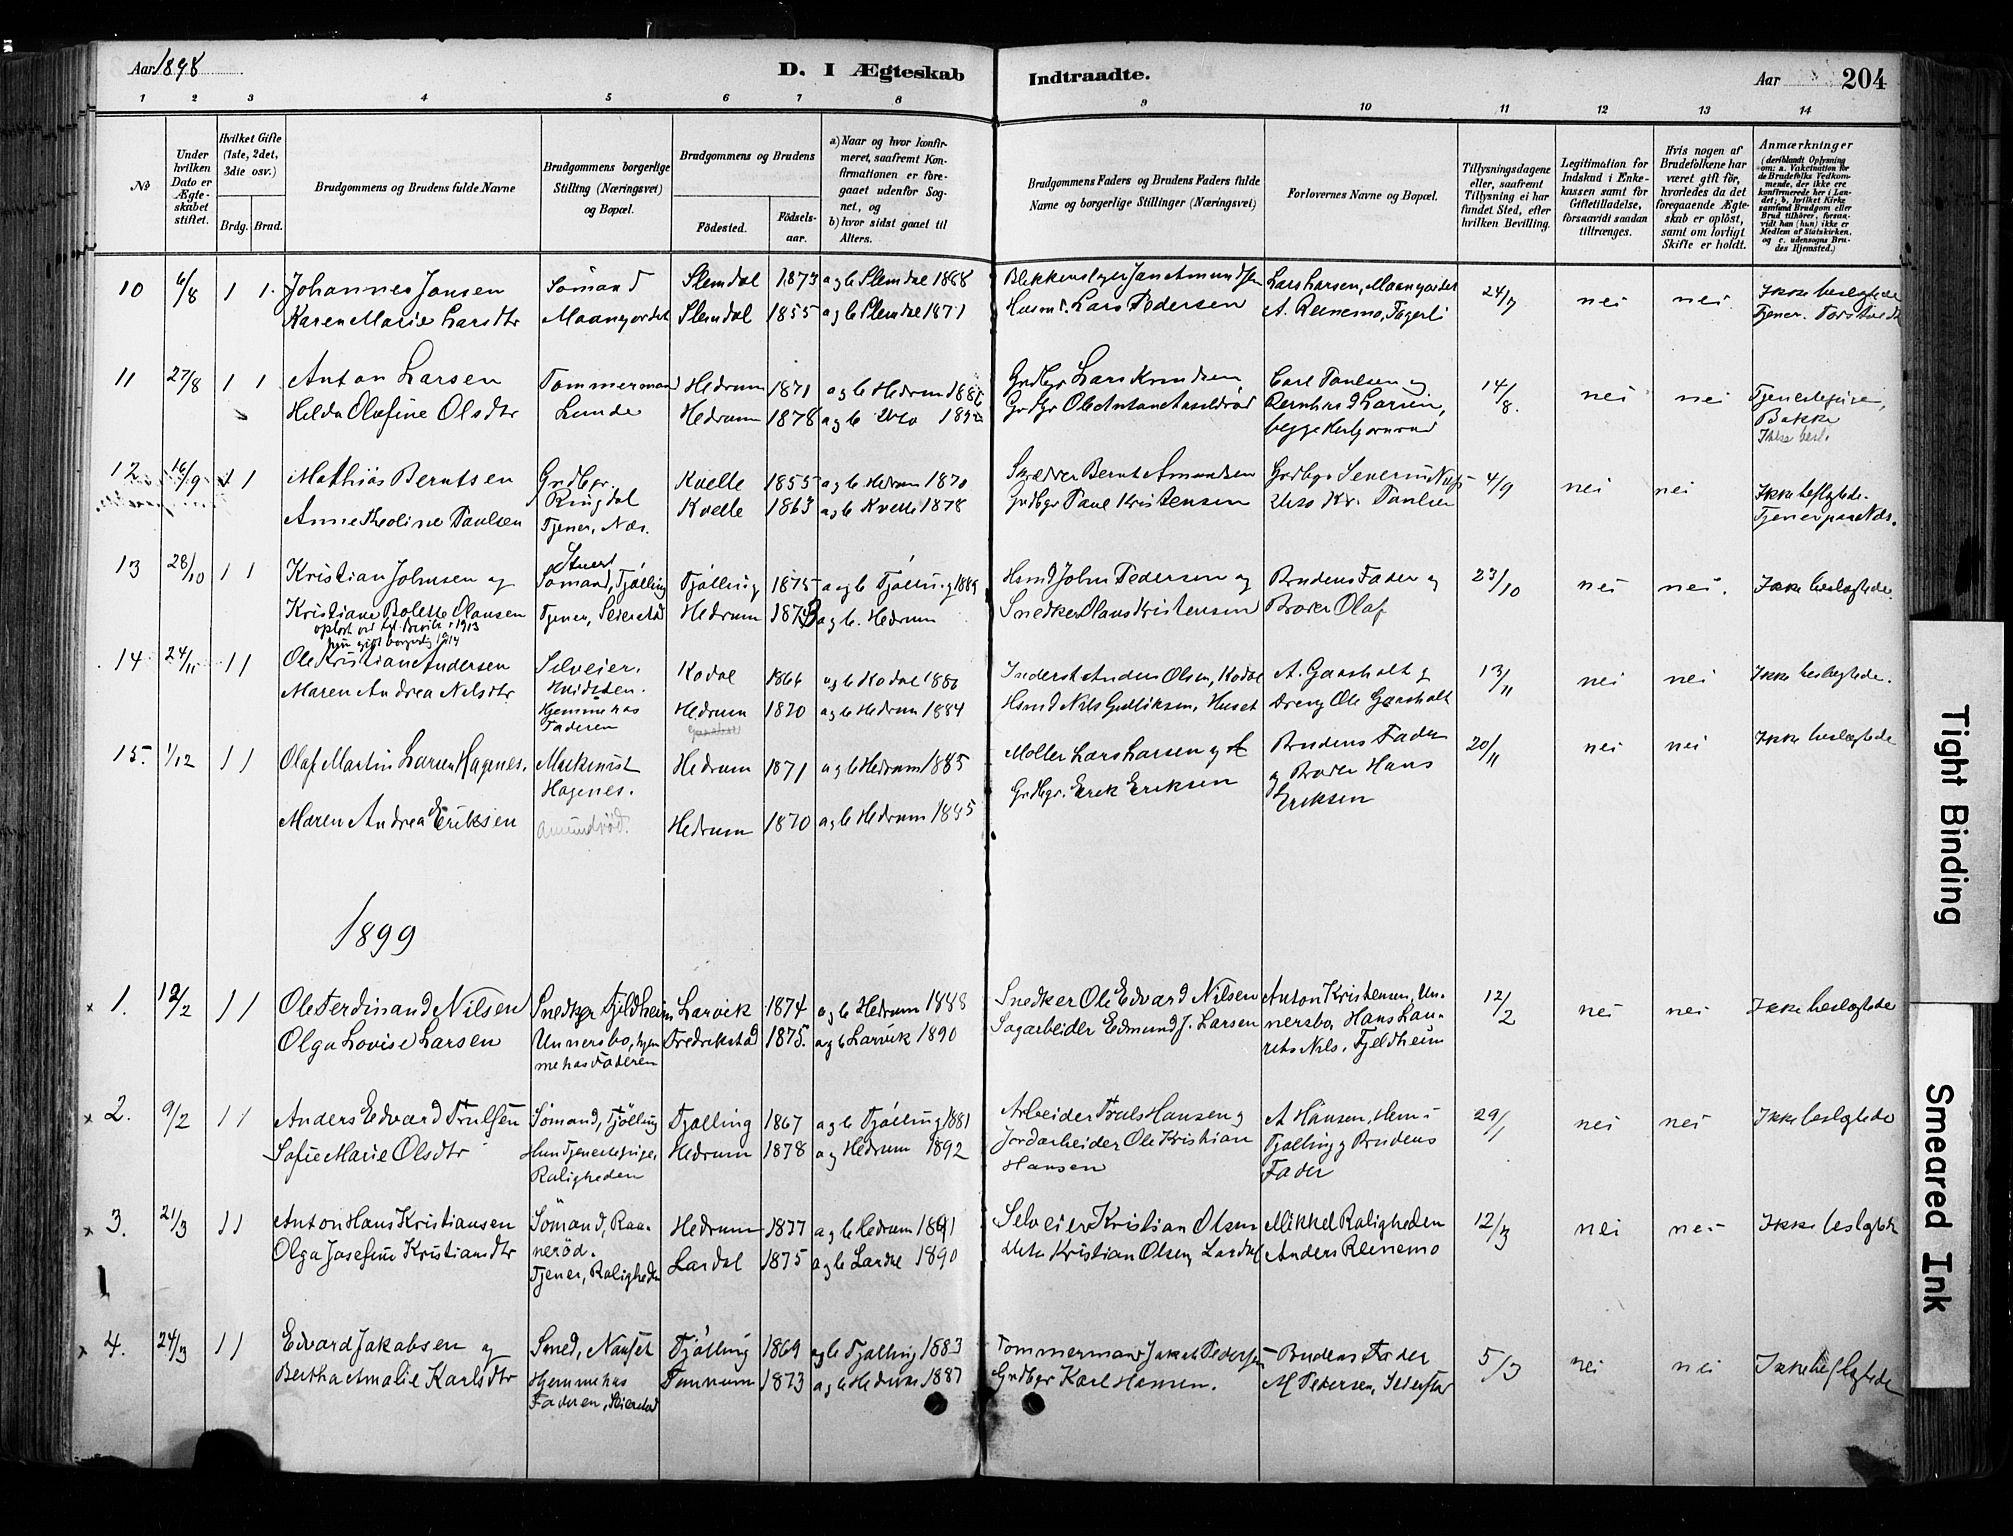 Aar 1898
D. I Ægteskab
Indtraadte.
Aar
204
1 2 3 4 5 6 7 8 9 10 11 12 13 14
No
Under hvilken Dato er Ægteskabet stiftet.
Hvilket Gifte (1ste, 2det, 3die osv.)
Brdg. Brud.
Brudgommens og Brudens fulde Navne
Brudgommens borgerlige Stilling (Næringsvei) og Bopæl.
Brudgommens og Brudens
Födested.
Födsels-aar.
a) Naar og hvor konfirmeret, saafremt Konfirmationen er foregaaet udenfor Sognet, og
b) hvor sidst gaaet til Alters.
Brudgommens Faders og Brudens Faders fulde Navne og borgerlige Stillinger (Næringsvei)
Forlovernes Navne og Bopæl.
Tillysningsdagene eller, saafremt Tillysning ei har fundet Sted, efter hvilken Bevilling.
Legitimation for Indskud i Enkekassen samt for Giftetilladelse, forsaavidt saadan tiltrænges.
Hvis nogen af Brudefolkene har været gift før, hvorledes da det foregaaende Ægteskab er opløst, samt om lovligt Skifte er holdt.
Anmærkninger (deriblandt Oplysning om: a. Vakcination for de Brudefolks Vedkommende, der ikke ere konfirmerede her i Landet; b. hvilket Kirkesamfund Brudgom eller Brud tilhører, forsaavidt han (hun) ikke er Medlem af Statskirken, og c. udensogns Brudes Hjemsted.)
10 6/8 1 1. Johannes Jansen Sømand Slemdal 1873 a og b Slemdal 1888 Blikkenslager Jan Amundsen Lars Larsen, Maangardet 24/7 nei nei Ikke beslegtede
Karen Marie Larsdtr Maangardet Slemdal 1855 a og b Slemdal 1871 Husmd. Lars Pedersen A. Reinemo, Fagerli Tjener.
11 27/8 1 1 Anton Larsen Tømmermand Hedrum 1871 a og b Hedrum 1886 Grdbgr Lars Knudsen Carl Paulsen og 14/8. nei nei Tjenestepige,
Helda Olefine Olsdtr Lunde Hedrum 1878 a og b 1892 Grdbgr Ole Antonsen Bernhard Larsen, Bakke
begge Ikke besl.
12 16/9 1 1 Mathias Berntsen Grdbgr. Kvelle 1855 a og b Hedrum 1870 Skrædder Bernt Amundsen Grdbgr Severin Næss 4/9 nei nei Ikke beslegtede.
Ringdal
Anne Karoline Paulsen Tjener, Næs. Kvelle 1863 a og b Kvelle 1878 Grdbgr Paul Kristensen Kr. Paulsen Tjener paa Næs.
13 28/10 1 1 Kristian Johnsen og Stuert Sømand, Tjølling Tjølling 1875 a og b Tjølling 1889 Hsmd John Pedersen og Brudens Fader og 23/10 nei nei. Ikke beslegtede
Kristiane Bolette Olausen Tjener, Seierstad Hedrum 1873 a og b. Hedrum Snedker Olaus Kristensen Broder Olaf
opløst ved kgl. Bevilln. 1913
hun gift borgerlig 1914
14 24/11 1 1 Ole Kristian Andersen Selveier, Kodal 1866 a og b Kodal 1880 Inderst Anders Olsen, Kodal A. Gaasholt og 13/11 nei nei Ikke beslegtede.
Maren Andrea Nilsdtr Hvidsten. Hjemme hos Faderen Hedrum 1870 a og b Hedrum 1884 Hsmd Nils Gulliksen, Huset Dreng Ole Gaasholt
15. 1/12 1 1 Olaf Martin Larsen Hagenes. Maskinist Hedrum 1871 a og b Hedrum 1885 Møller Lars Larsen og Brudens Fader 20/11 nei nei Ikke beslegtede
Hagenes. Grdbgr. Erek Eriksen og Broder Hans
Maren Andrea Eriksen Amundrød. Hedrum 1870 a og b Hedrum 1885 Eriksen
1899
x 1. 12/2 1 1 Ole Ferdinand Nilsen Snedker Fjeldheim Larvik 1874 a og b Hedrum 1888 Snedker Ole Edvard Nilsen Anton Kristensen, Un- 12/2 nei nei Ikke beslegtede
Olga Lovise Larsen Unnersbo, hjem- Fredrikstad 1875. a og b Larvik 1890 Sagarbeider Edmund J. Larsen nersbo, Hans Lau-
me hos Faderen rits Nils. Fjeldheim
x 2. 9/2 1 1 Anders Edvard Trulsen Sømand, Tjølling Tjølling 1867 a og b Tjølling 1881 Arbeider Truls Hansen og A Hansen, Hem i 29/1 nei nei Ikke beslegtede
Sofie Marie Olsdtr Hun Tjenestepige, Hedrum 1878 a og Hedrum 1892 Jordarbeider Ole Kristian Tjølling og Brudens
Raligheden Hansen Fader
x 3. 21/3 1 1 Anton Hans Kristiansen Sømand, Raa- Hedrum 1877 a og b Hedrum 1891 Selveier Kristian Olsen Mikkel Raligheden 12/3 nei nei Ikke beslegtede
Olga Josefine Kristiansdtr nerød. Lardal 1875 a og b Lardal 1890 Kristian Olsen, Lardal Anders Reinemo
Tjener, Raligheden
x 4. 24/3 1 1 Edvard Jakobsen og Smed, Nanset Tjølling 1869 a og b Tjølling 1883 Tømmermand Jakob Pedersen Brudens Fader 5/3 nei nei Ikke beslegtede
Bertha Amalie Karlsdtr Hjemme hos Tanum 1873 a og b Hedrum 1887 Grdbgr Karl Hansen. M Pedersen, Seierstad
Faderen, Seierstad
Tight Binding
Smeared Ink